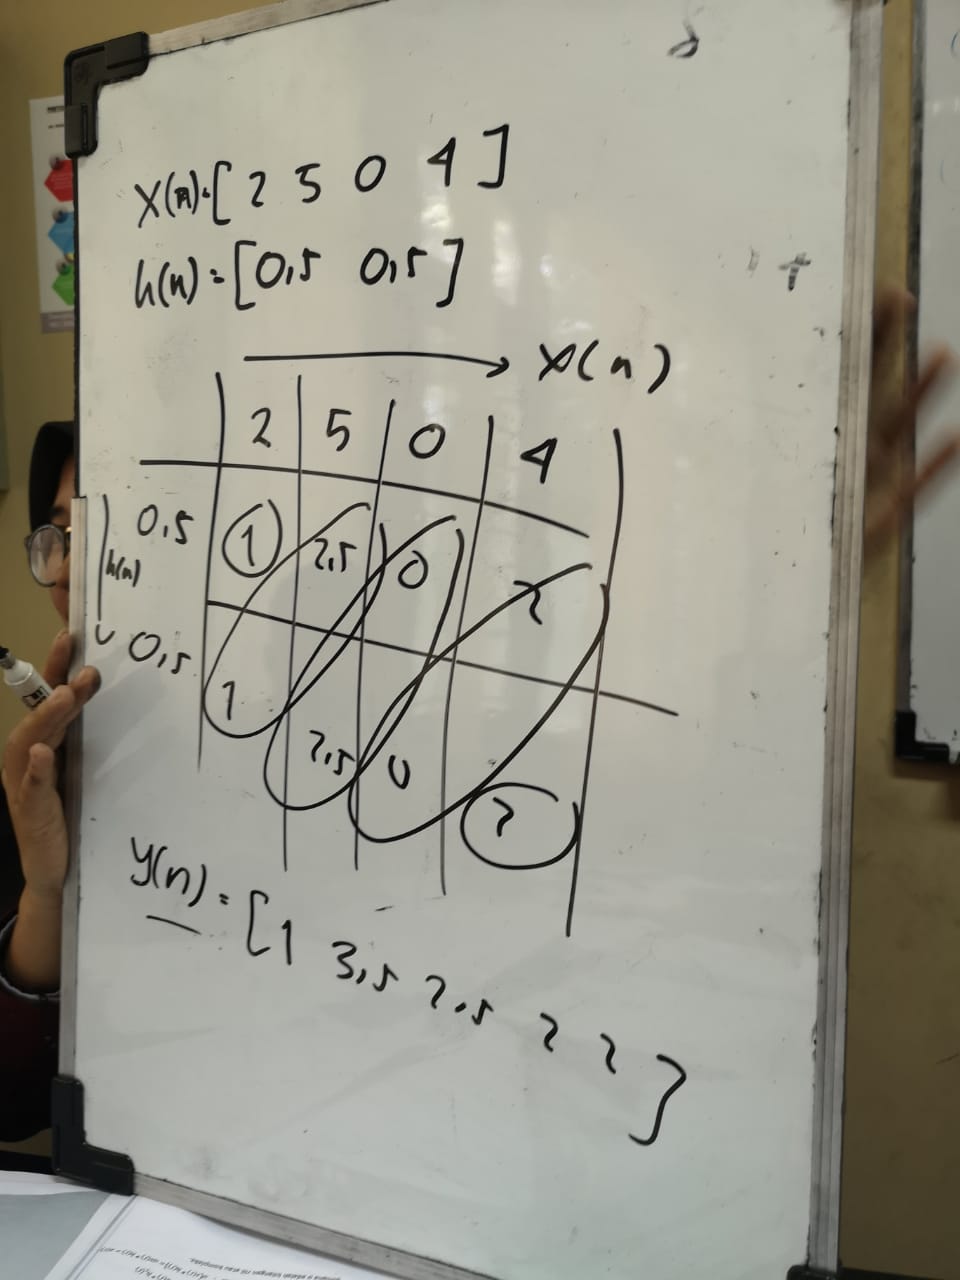 x(n)=[2 5 0 4]
h(n)=[0,5 0,5]
x(n)
2 5 0 4
0,5 1 2,5 0 2
h(n)
0,5 1 2,5 0 2
y(n)=[1 3,5 2,5 2 2]